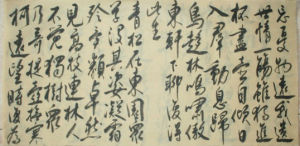 忘憂物遠我遺
世情一觴雖獨進
杯盡壺自傾日
入群動息歸
鳥趨林鳴嘯傲
東軒下聊復得
此生
青松在東園眾
草沒其姿凝霜
殄異類卓然
見高枝連林人
不覺獨樹眾
乃奇提壺撫寒
柯遠望時復為